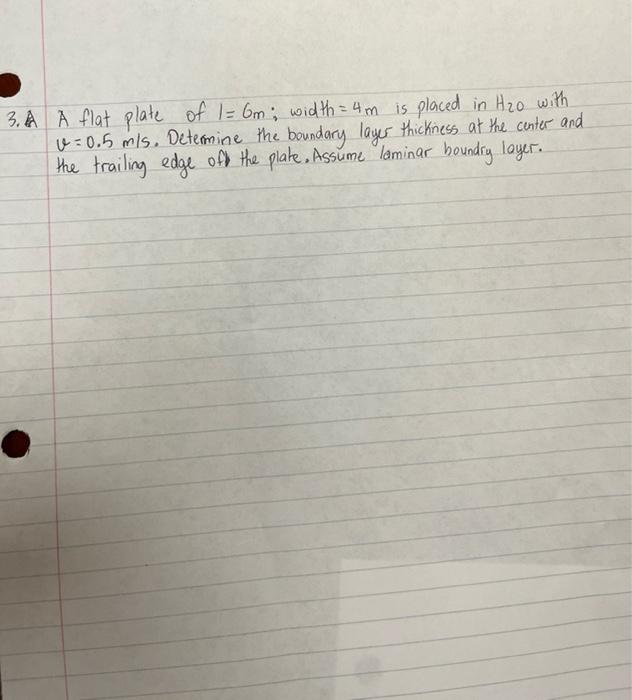 3. A A flat plate of l = 6m; width = 4m is placed in H2O with
v = 0.5 m/s. Determine the boundary layer thickness at the center and
the trailing edge of the plate. Assume laminar boundry layer.